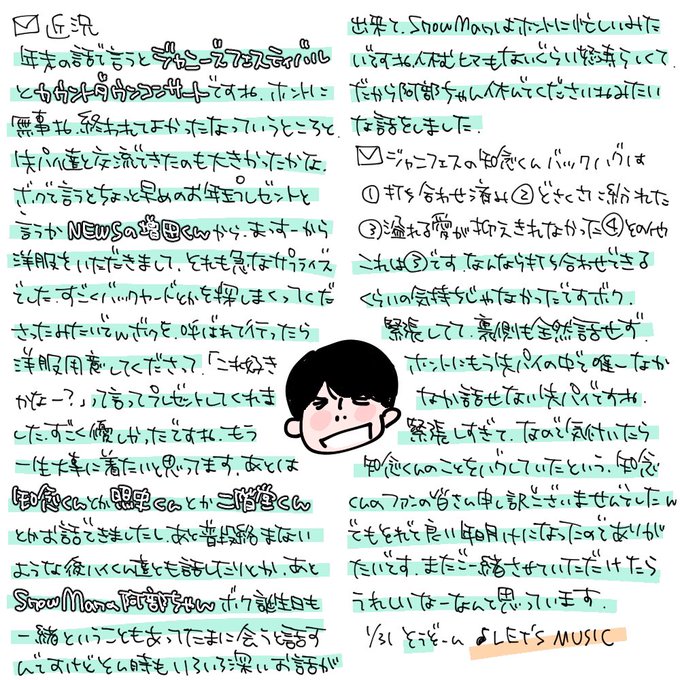 近況
年末の話で言うとジャニーズフェスティバル
とカウントダウンコンサートですね。ホントに
無事ね、終われてよかったなっていうところと、
先パイ達と交流できたのも大きかったかな。
ボクで言うとちょっと早めのお年玉プレゼントと
言うかNEWSの増田くんから、まっすーから
洋服をいただきまして、それも急なサプライズ
でした。すごくバックヤードとかを探しまくってくだ
さったみたいでボクを。呼ばれて行ったら
洋服用意してくださって、「これ好き
かなー?」って言ってプレゼントしてくれま
した。すごく優しかったですね。もう
一生大事に着たいと思ってます。あとは
知念くんとか照史くんとか二階堂くん
とかお話できましたし、あと普段絡まない
ような後ハイくん達とも話したりとか、あと
SnowManの阿部ちゃん ボク誕生日も
一緒ということもあってたまに会うと話す
んですけどその時もいろいろ深いお話が
出来て、SnowManはホントに忙しいみた
いですね。休むヒマもないぐらい らしくて。
だから阿部ちゃん休んでくださいねみたい
な話をしました。
ジャニフェスの知念くんバックハグは
①打ち合わせ済み ②どさくさに紛れた
③溢れる愛が抑えきれなかった ④その他
これは③です。なんなら打ち合わせできる
くらいの気持ちじゃなかったですボク。
緊張してて、裏側も全然話せず。
ホントにもう先パイの中で唯一なか
なか話せない先パイですね。
緊張しすぎて。なので気付いたら
知念くんのことをハグしていたという。知念
くんのファンの皆さん申し訳ございませんでしたw
でもそれで良い年明けになったのでありが
たいです。またご一緒させていただけたら
うれしいなーなんて思っています。
1/31 らじらー ♪LET'S MUSIC